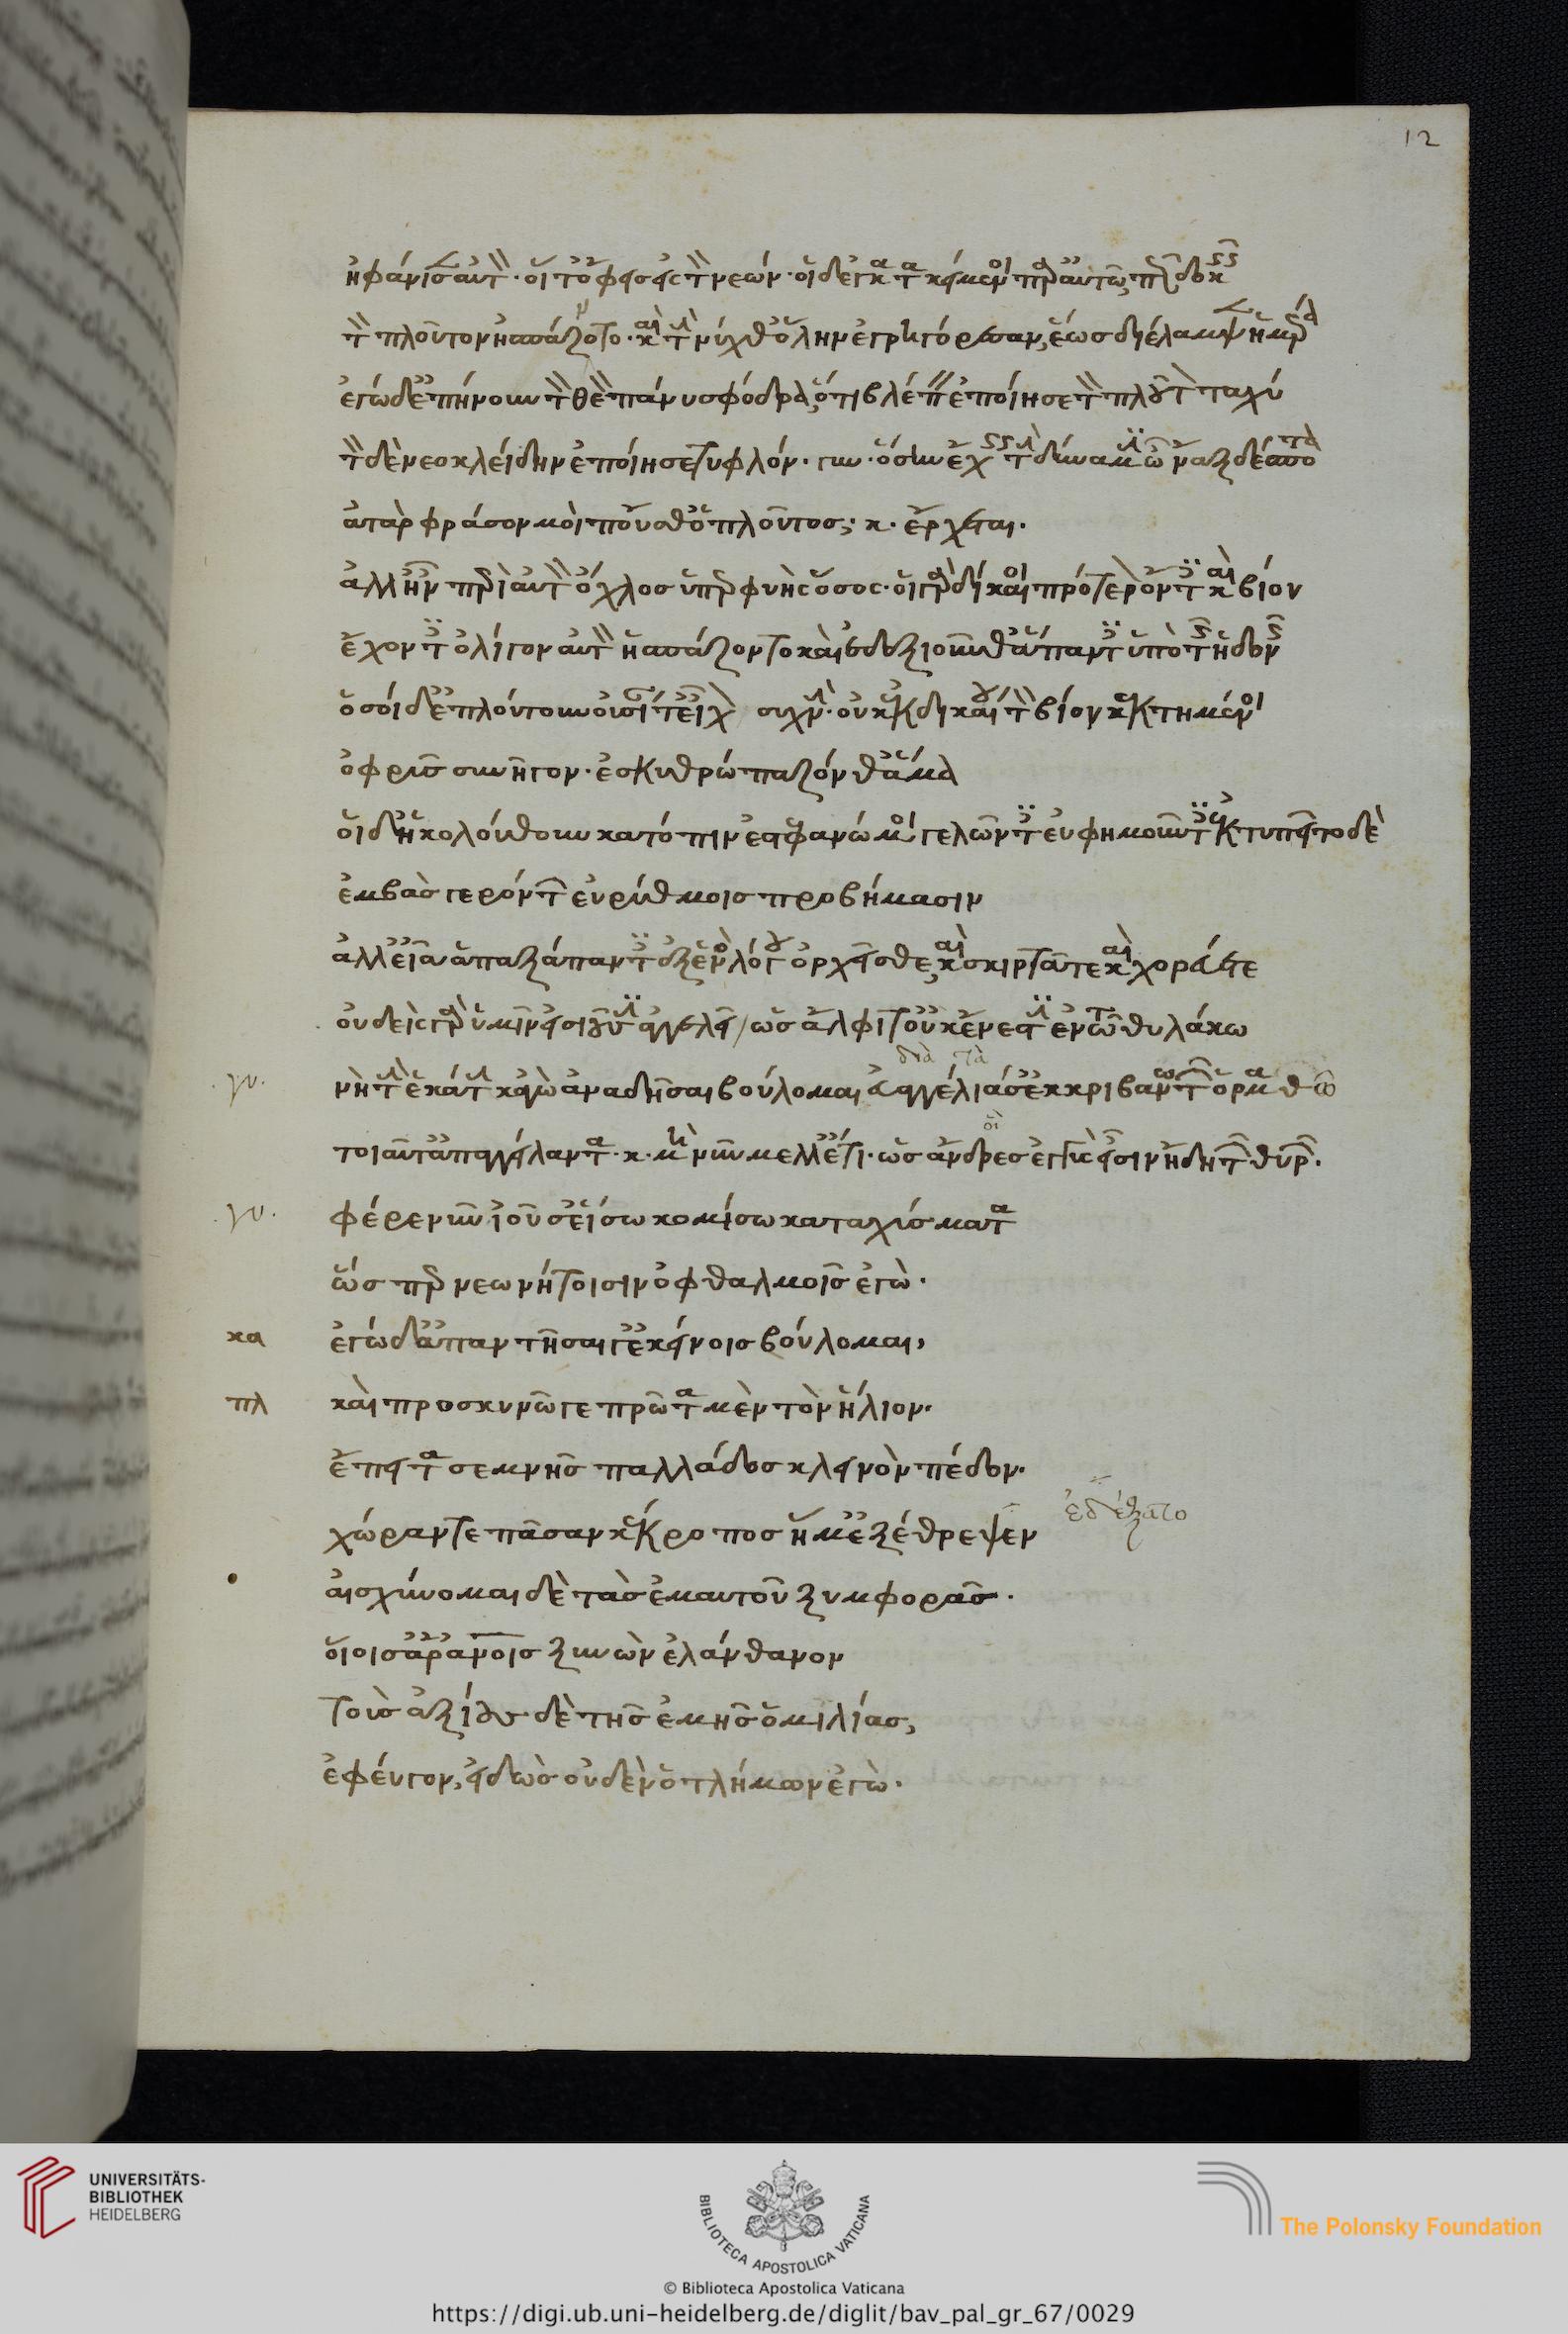 12
ἠφάνισεν αὑτὸν οἵ τ' ὄφεις εἰς τὸν νεών· οἱ δ' ἐγκατακείμενοι παρ' αὐτῷ πῶς δοκεῖς
τὸν πλοῦτον ἠσπάζοντο· καὶ τὴν νύχθ' ὅλην ἐγρηγόρεσαν, ἕως διέλαμψεν ἡμέρα
ἐγὼ δ' ἐπήνουν τὸν θεὸν πάνυ σφόδρα, ὅτι βλέπειν ἐποίησε τὸν πλοῦτον ταχὺ
τὸν δὲ νεοκλείδην ἐποίησε τυφλόν. γυν. ὅσην ἔχεις τὴν δύναμιν ὦναξ δέσποτα
ἀτὰρ φράσον μοι ποῦ 'σθ' ὁ πλοῦτος; κ. ἔρχεται.
ἀλλ' ἦν περὶ αὐτὸν ὄχλος ὑπερφυὴς ὅσος· οἱ γὰρ δίκαιοι πρότερον ὄντες καὶ βίον
ἔχοντες ὀλίγον αὐτὸν ἠσπάζοντο καὶ ἐδεξιοῦνθ' ἅπαντες ὑπὸ τῆς ἡδονῆς
ὅσοι δ' ἐπλούτουν οὐσίαν τ' εἶχον συχνήν· οὐκ ἐκ δικαίου τὸν βίον κεκτημένοι
ὀφρῦς συνῆγον· ἐσκυθρώπαζόν θ' ἅμα
οἱ δ' ἠκολούθουν κατόπιν ἐστεφανωμένοι γελῶντες εὐφημοῦντες ἐκτυπεῖτο δὲ
ἐμβὰς γερόντων εὐρύθμοις προβήμασιν
ἀλλ' εἶα ἁπαξάπαντες ἐξ ἑνὸς λόγου ὀρχεῖσθε, καὶ σκιρτᾶτε καὶ χορεύετε
οὐδεὶς γὰρ ὑμῖν εἰσιοῦσιν ἀγγελεῖ, ὡς ἄλφιτ' οὐκ ἔνεστιν ἐν τῷ θυλάκω
διὰ τὰ
γυ. νὴ τὴν ἑκάτην κἀγὼ ἀναδῆσαι βούλομαι εὐαγγέλιά σ' ἐκ κριβανωτῶν ὁρμαθῶ
οἱ
τοιαῦτ' ἀπαγγείλαντα. κ. μὴ νῦν μέλλ' ἔτι. ὡς ἄνδρες ἐγγύς εἰσιν ἤδη τῶν θυρῶν.
γυ. φέρε νῦν ἰοῦσ' εἴσω κομίσω καταχύσματα
ὥσπερ νεωνήτοισιν ὀφθαλμοῖς ἐγὼ.
κα ἐγὼ δ' ἀπαντῆσαί γ' ἐκείνοις βούλομαι,
πλ καὶ προσκυνῶ γε πρῶτα μὲν τὸν ἥλιον.
ἔπειτα σεμνῆς παλλάδος κλεινὸν πέδον.
χώραν τε πᾶσαν κέκροπος ἥ μ' ἐξέθρεψεν ἐδέξατο
αἰσχύνομαι δὲ τὰς ἐμαυτοῦ ξυμφορᾶς.
οἵοις ἄρ' ἀνθρώποις ξυνὼν ἐλάνθανον
τοὺς ἀξίους δὲ τῆς ἐμῆς ὁμιλίας,
ἔφευγον, εἰδὼς οὐδὲν ὁ τλήμων ἐγὼ.
UNIVERSITÄTS-
BIBLIOTHEK
HEIDELBERG
BIBLIOTECA APOSTOLICA VATICANA
The Polonsky Foundation
© Biblioteca Apostolica Vaticana
https://digi.ub.uni-heidelberg.de/diglit/bav_pal_gr_67/0029